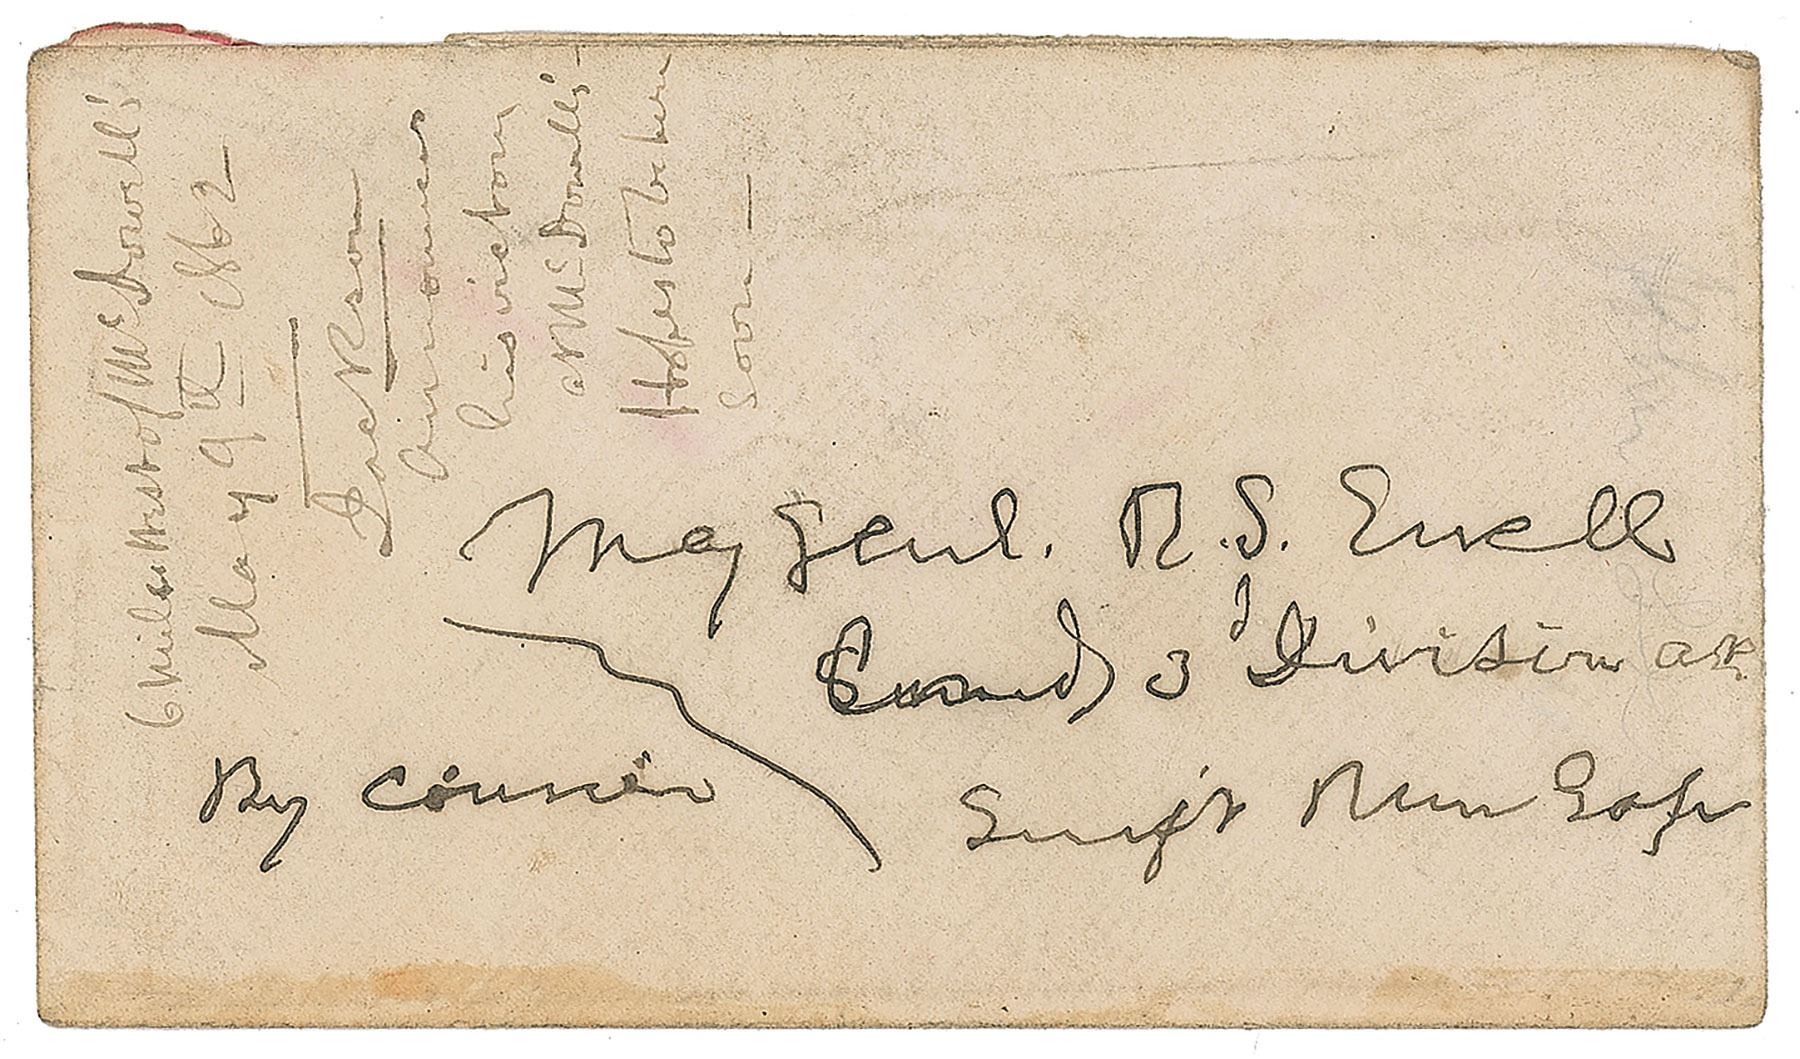 6 miles West of McDowell's
May 9th 1862
Jackson
announces
his victory
at McDowell's -
Hopes to be here
soon -
Maj Genl. R. S. Ewell
Comdg 3d Division at
Swift Run Gap
By Courier